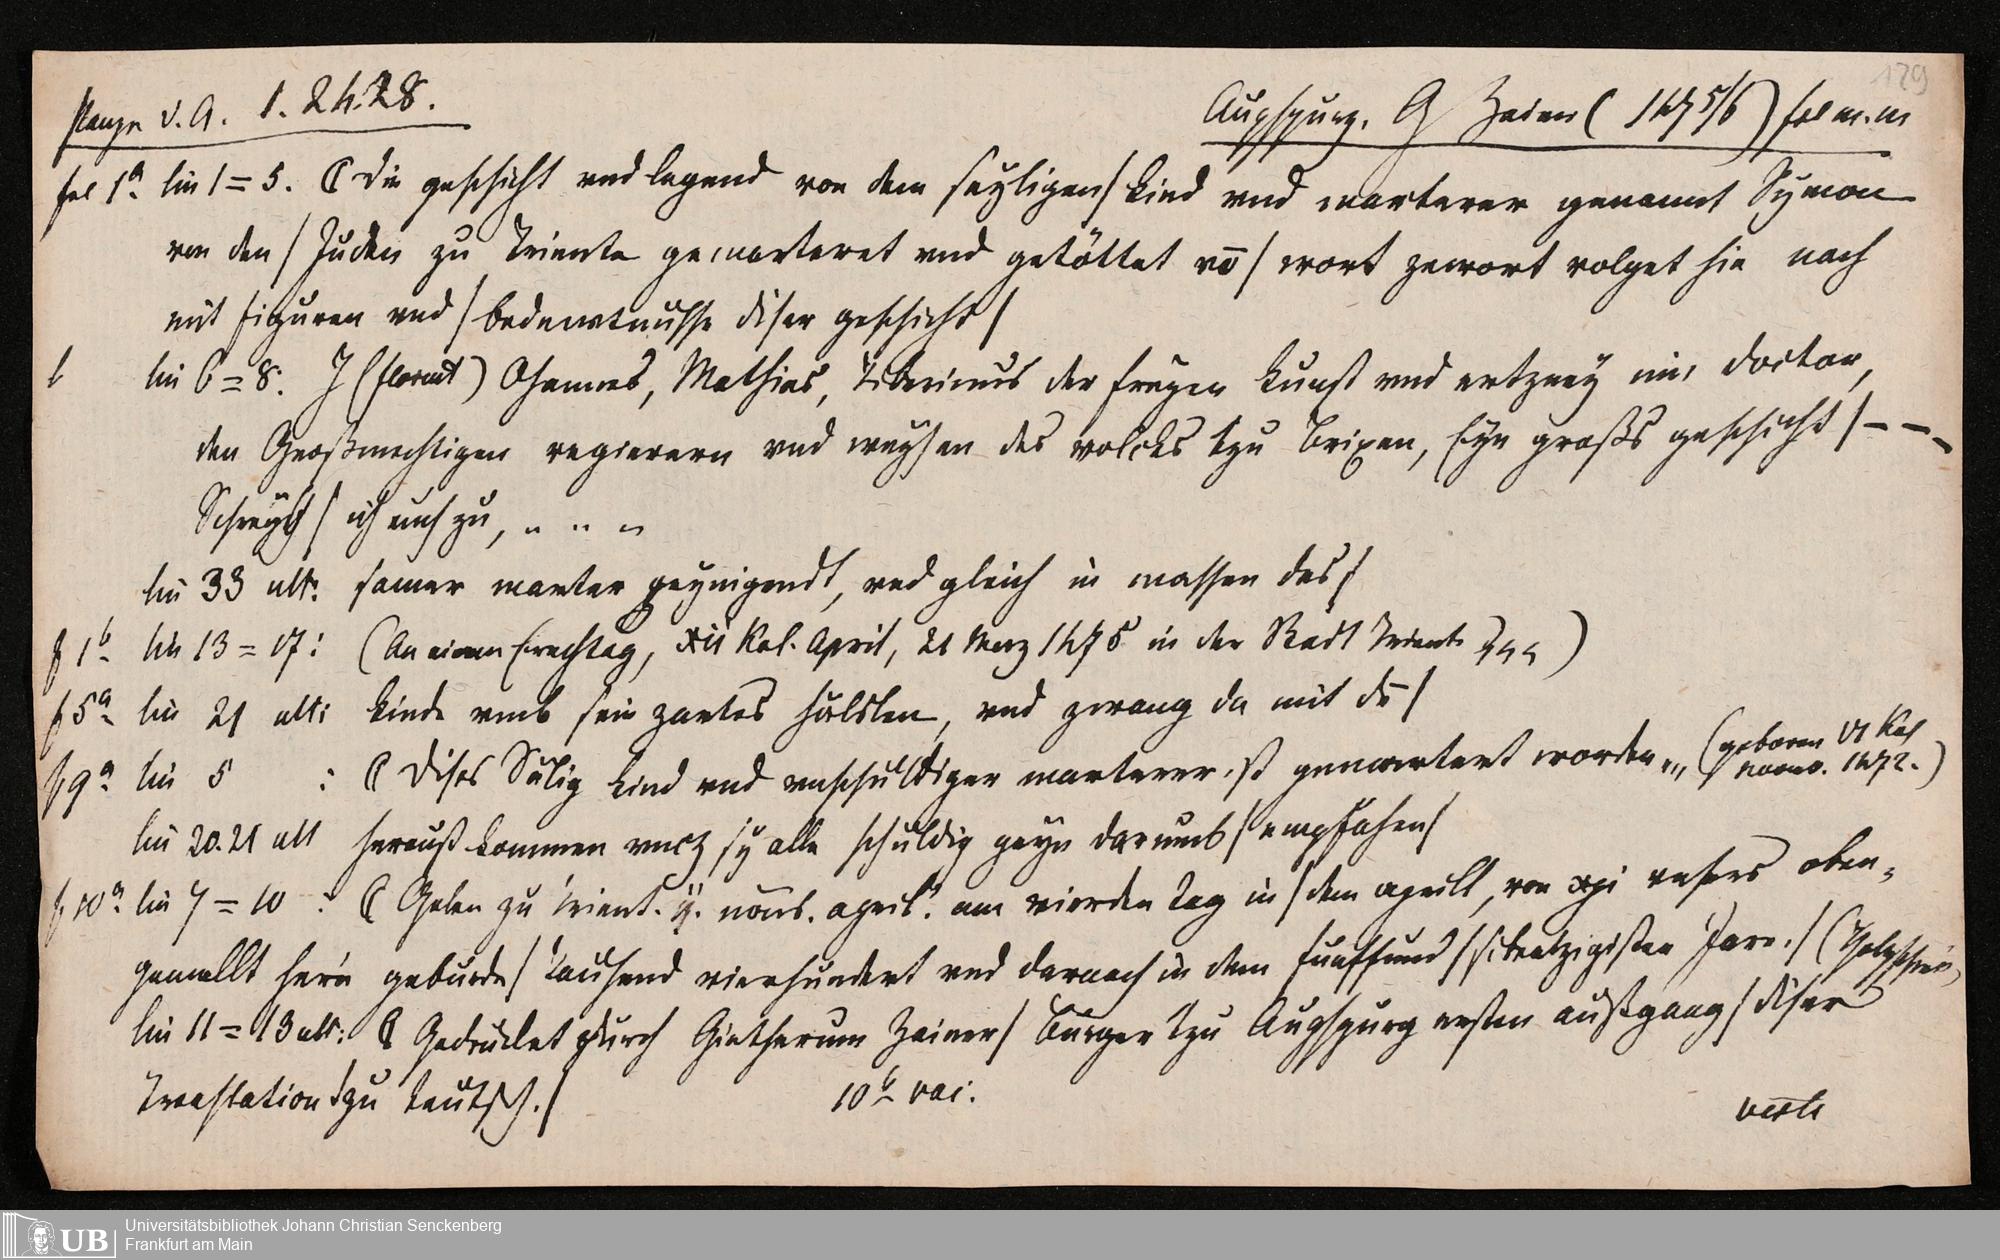 129
Panzer d. A. 1. 24.28.
Augspurg. G Zainer (1475/6) fol m. m
fol 1a. lin 1=5. ¶ Die geschicht vnd legend von dem seyligen/ kind vnd marterer genannt Symon
von den / Juden zu Triente gemarteret vnd getöttet vō / wort zewort volget hie nach
mit figuren vnd / bedewtnusse diser geschicht /
lin 6=8: J (florint) Ohannes, Mathias, Tiberinus der freyen kunst vnd ertzney im, doctor,
den Großmechtigen regierern vnd weysen des volcks tzu Brixen, Eyn großs geschicht / – – –
Schreyb / ich euch zu, „ „ „
lin 33 ult: samer marter peynigendt, vnd gleich in massen das /
f 1b lin 13=17: (An einem Erechtag, xii Kal. April, 21 Merz 1475 in der Stadt Trient )
f 5a lin 21 ult: kinde vmb sein zartes hälslen, vnd zwang da mit dē /
f 9a lin 5 : ¶ Dises Sälig kind vnd vnschuldiger marterer ist gemartert worden „„ (geboren VI Kal
novemb. 1472.)
lin 20.21 ult herauß kommen vncz sy alle schuldig peyn darumb / empfahen /
f 10a lin 7=10 : ¶ Geben zu Trient. ij. nonas. april. am vierden tag in / dem aprill, von xpi vnsers oben-
gemellt herrn geburde / Tausend vierhundert vnd darnach in dem funffund / sibentzigisten Jare. / (Holzschnitt)
lin 11=13 ult: ¶ Gedrucket durch Gintherum Zainer / Burger tzu Augspurg ersten außgang / diser
Translation tzu teutsch. /
10b vac.